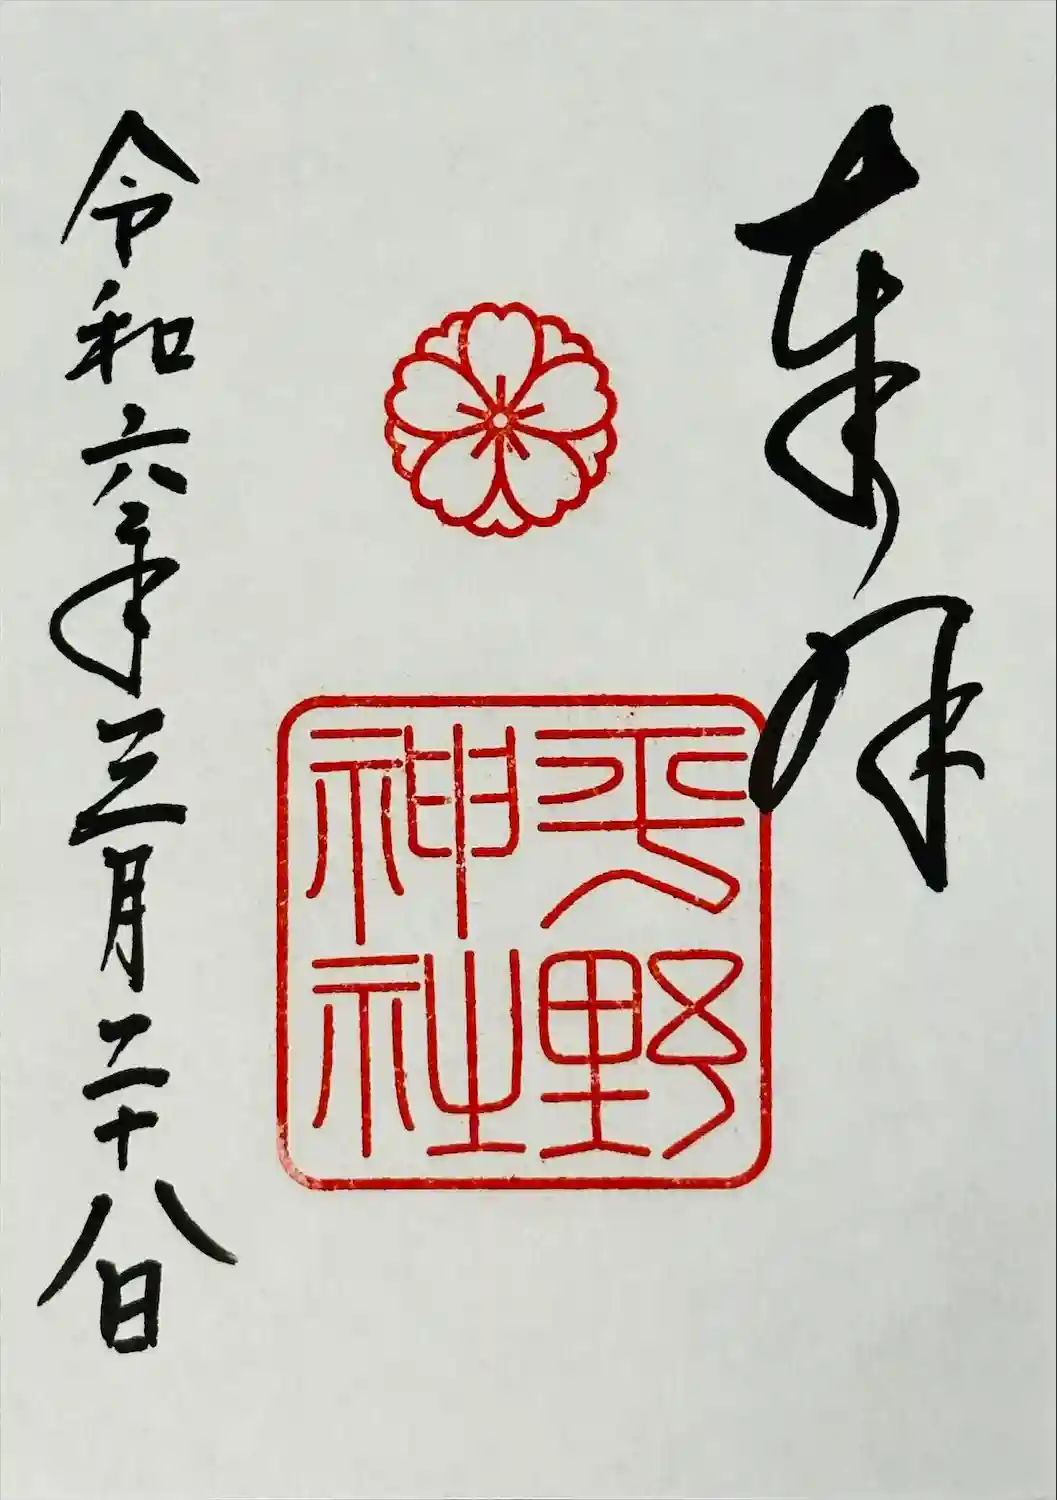 奉拝
平野
神社
令和六年三月二十八日